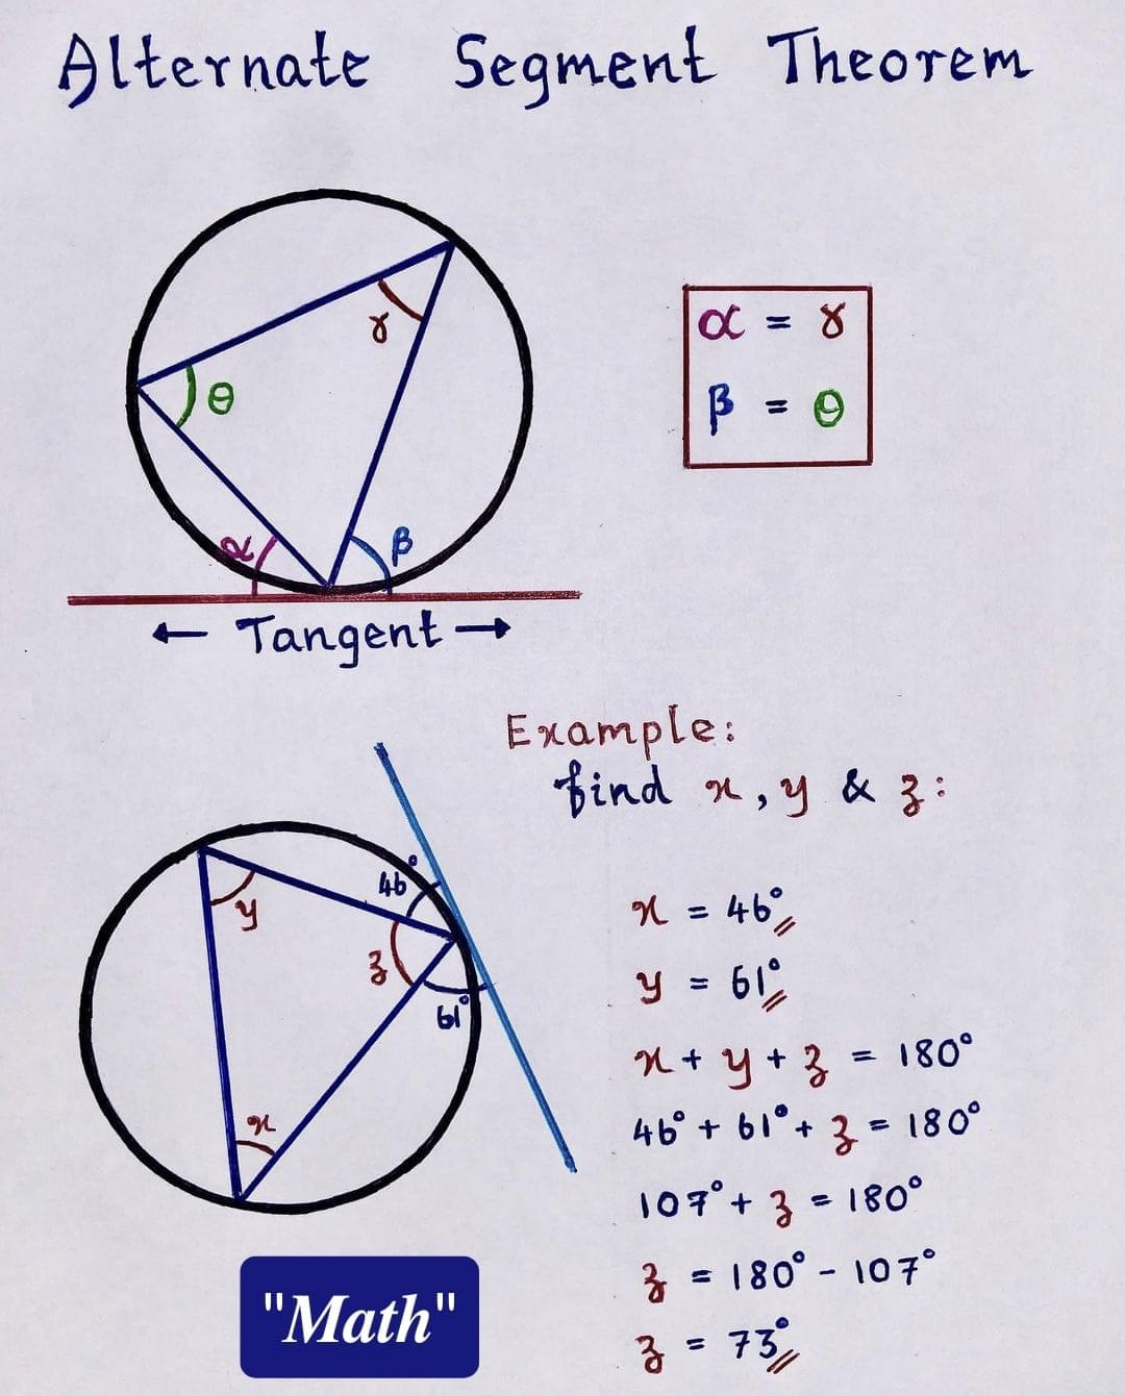 Alternate Segment Theorem
γ
θ
α = γ
β = θ
α
β
← Tangent →
Example:
find x, y & z:
46°
y
z
61°
x
x = 46°
y = 61°
x + y + z = 180°
46° + 61° + z = 180°
107° + z = 180°
z = 180° - 107°
z = 73°
"Math"